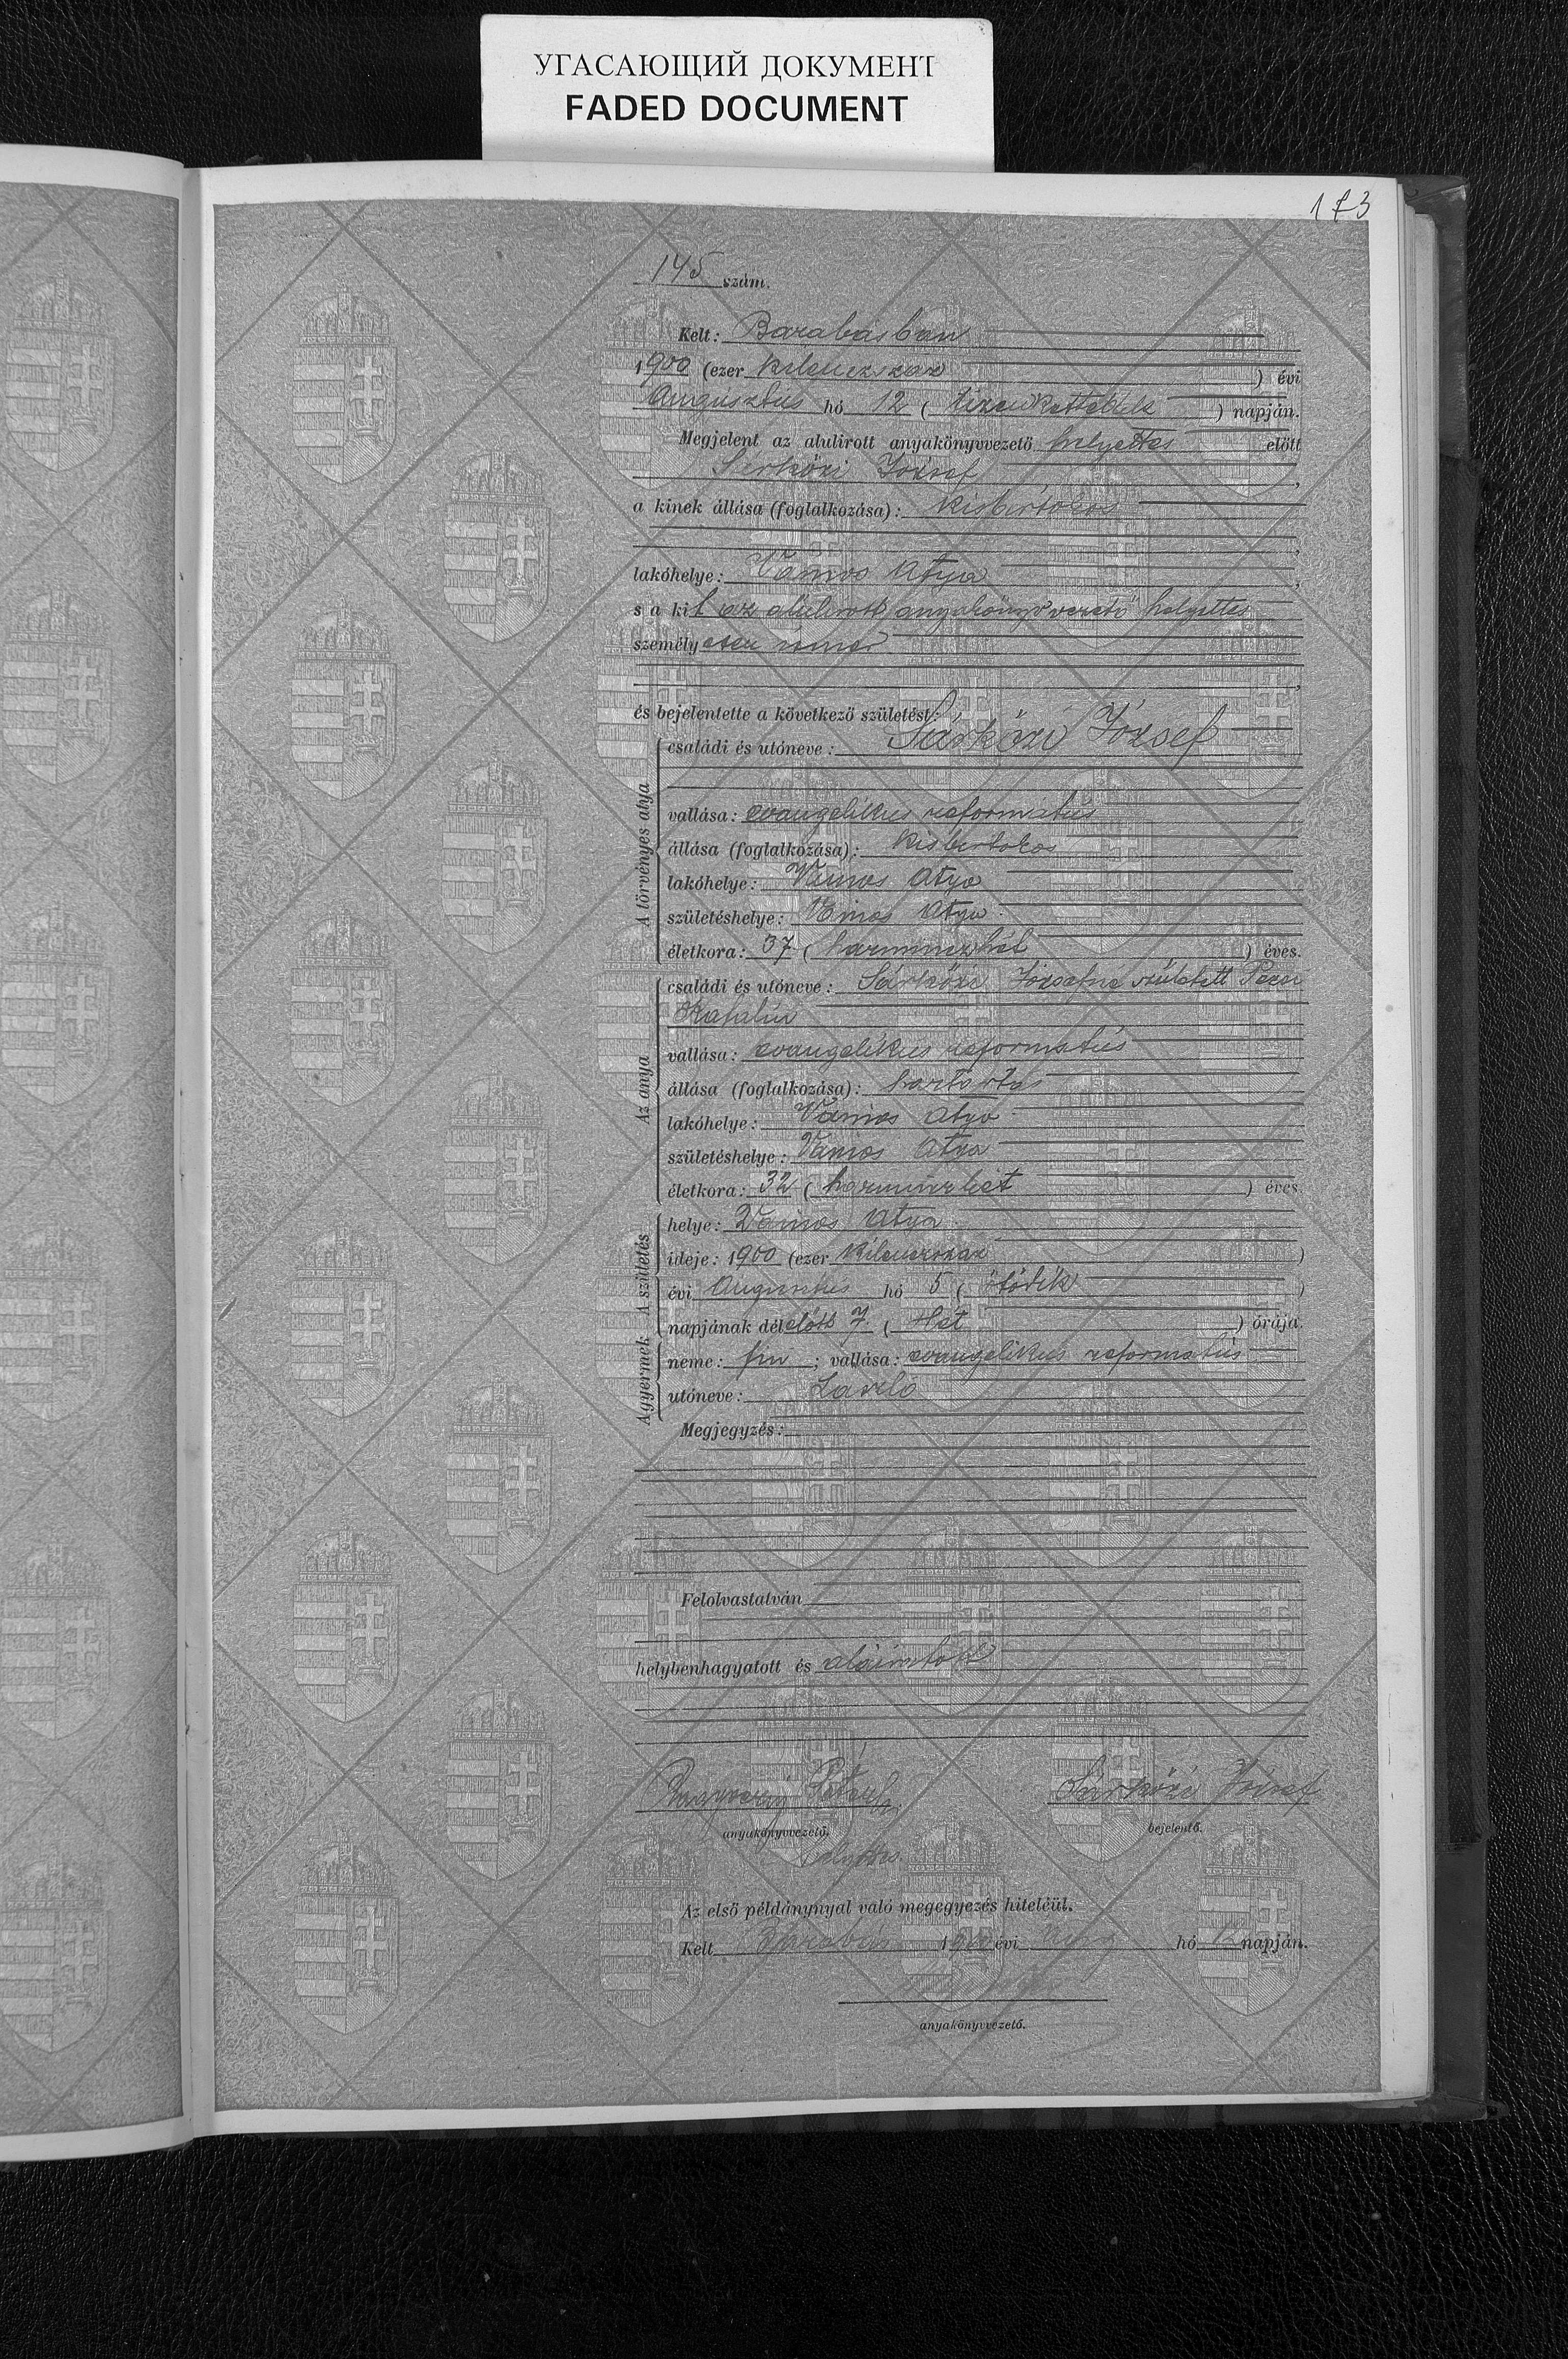 УГАСАЮЩИЙ ДОКУМЕНТ
FADED DOCUMENT
173
145 szám.
Kelt: Barabásban
1900 (ezer kilenczszáz ) évi
Augusztus hó 12 ( tizenkettedik ) napján.
Megjelent az alulirott anyakönyvvezető helyettes előtt
Sárközi József ,
a kinek állása (foglalkozása): kisbirtokos
lakóhelye: Vámos Atya ,
s a kit az alulirott anyakönyvvezető helyettes
személyesen ismer
és bejelentette a következő születést:
A törvényes atya
családi és utóneve: Sárközi József
vallása: evangelikus református
állása (foglalkozása): kisbirtokos
lakóhelye: Vámos Atya
születéshelye: Vámos Atya
életkora: 37 ( harminczhét ) éves.
Az anya
családi és utóneve: Sárközi Józsefné született
Katalin
vallása: evangelikus református
állása (foglalkozása): háztartás
lakóhelye: Vámos Atya
születéshelye: Vámos Atya
életkora: 32 ( ) éves.
A születés
helye: Vámos Atya
ideje: 1900 (ezer kilenczszáz )
évi Augusztus hó 5 ( ötödik )
napjának délelőtt 7 ( Hét ) órája.
A gyermek
neme: fiu ; vallása: evangelikus református
utóneve: László
Megjegyzés:
Felolvastatván
helybenhagyatott és aláiratott
Sárközi József
anyakönyvvezető. bejelentő.
helyettes
Az első példánynyal való megegyezés hiteléül.
Kelt Barabás 1900 évi Aug hó 12 napján.
anyakönyvvezető.